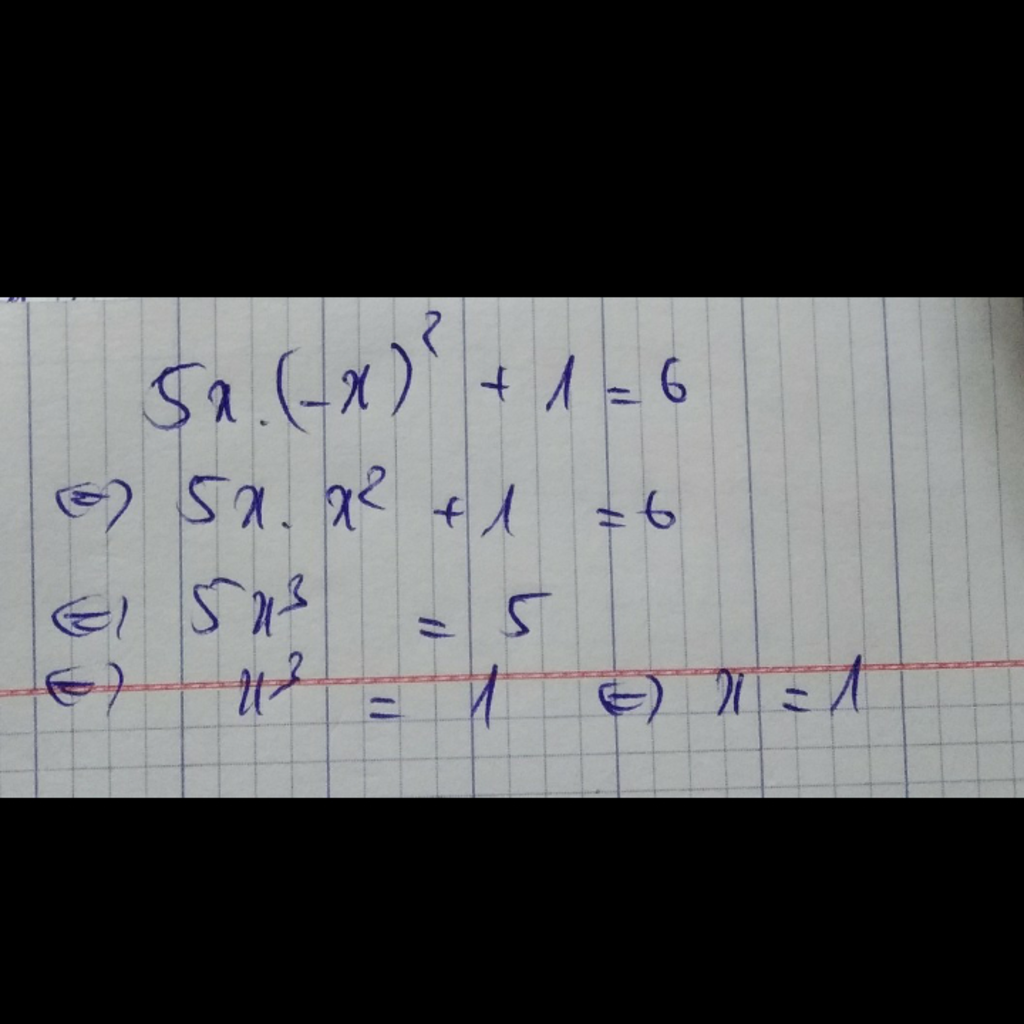 5x.(-x)² + 1 = 6
⇔ 5x. x² + 1 = 6
⇔ 5x³ = 5
⇔ x³ = 1 ⇔ x = 1